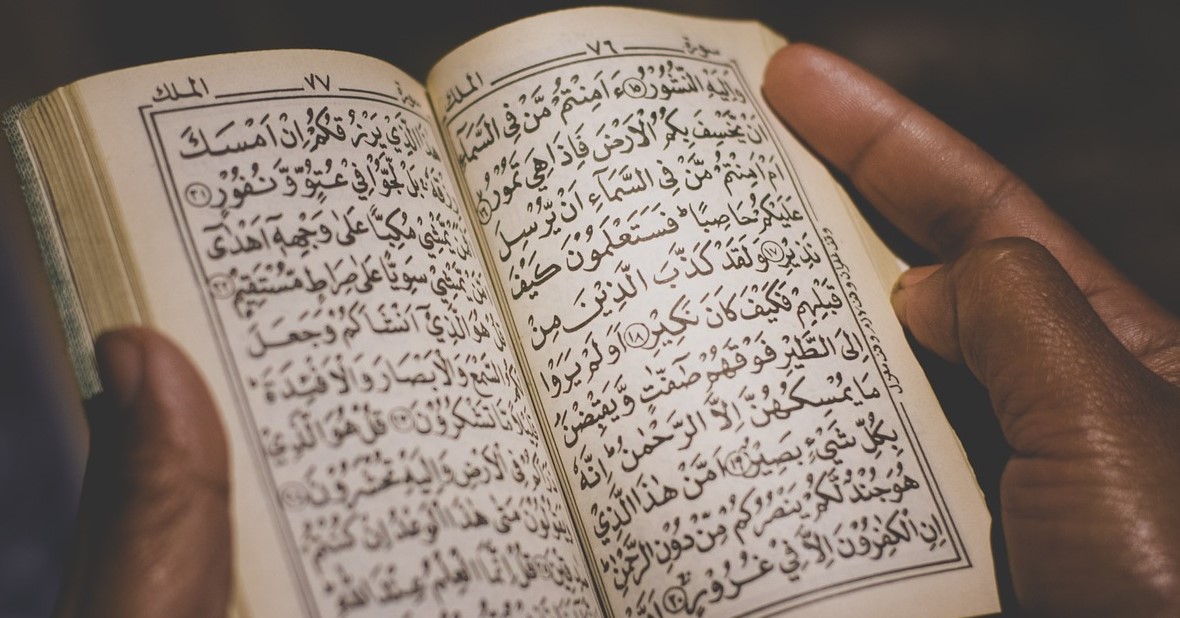 سورة ٧٦ الملك
وَاِلَيْهِ النُّشُوْرُ ۝١٥ ءَاَمِنْتُمْ مَّنْ فِى السَّمَآءِ
اَنْ يَّخْسِفَ بِكُمُ الْاَرْضَ فَاِذَا هِيَ تَمُوْرُ ۝١٦
اَمْ اَمِنْتُمْ مَّنْ فِى السَّمَآءِ اَنْ يُّرْسِلَ
عَلَيْكُمْ حَاصِبًا ؕ فَسَتَعْلَمُوْنَ كَيْفَ
نَذِيْرِ ۝١٧ وَلَقَدْ كَذَّبَ الَّذِيْنَ مِنْ
قَبْلِهِمْ فَكَيْفَ كَانَ نَكِيْرِ ۝١٨ اَوَلَمْ يَرَوْا
اِلَى الطَّيْرِ فَوْقَهُمْ صٰٓفّٰتٍ وَّيَقْبِضْنَ
مَا يُمْسِكُهُنَّ اِلَّا الرَّحْمٰنُ ؕ اِنَّهٗ
بِكُلِّ شَيْءٍۭ بَصِيْرٌ ۝١٩ اَمَّنْ هٰذَا الَّذِيْ
هُوَ جُنْدٌ لَّكُمْ يَنْصُرُكُمْ مِّنْ دُوْنِ الرَّحْمٰنِ ؕ
اِنِ الْكٰفِرُوْنَ اِلَّا فِيْ غُرُوْرٍ ۝٢٠
سورة ٧٧ الملك
هٰذَا الَّذِيْ يَرْزُقُكُمْ اِنْ اَمْسَكَ
رِزْقَهٗ ۚ بَلْ لَّجُّوْا فِيْ عُتُوٍّ وَّنُفُوْرٍ ۝٢١
اَفَمَنْ يَّمْشِيْ مُكِبًّا عَلٰى وَجْهِهٖٓ اَهْدٰٓى
اَمَّنْ يَّمْشِيْ سَوِيًّا عَلٰى صِرَاطٍ مُّسْتَقِيْمٍ ۝٢٢
قُلْ هُوَ الَّذِيْٓ اَنْشَاَكُمْ وَجَعَلَ
لَكُمُ السَّمْعَ وَالْاَبْصَارَ وَالْاَفْـِٕدَةَ ؕ
قَلِيْلًا مَّا تَشْكُرُوْنَ ۝٢٣ قُلْ هُوَ الَّذِيْ
ذَرَاَكُمْ فِى الْاَرْضِ وَاِلَيْهِ تُحْشَرُوْنَ ۝٢٤
وَيَقُوْلُوْنَ مَتٰى هٰذَا الْوَعْدُ اِنْ كُنْتُمْ
صٰدِقِيْنَ ۝٢٥ قُلْ اِنَّمَا الْعِلْمُ عِنْدَ اللّٰهِ